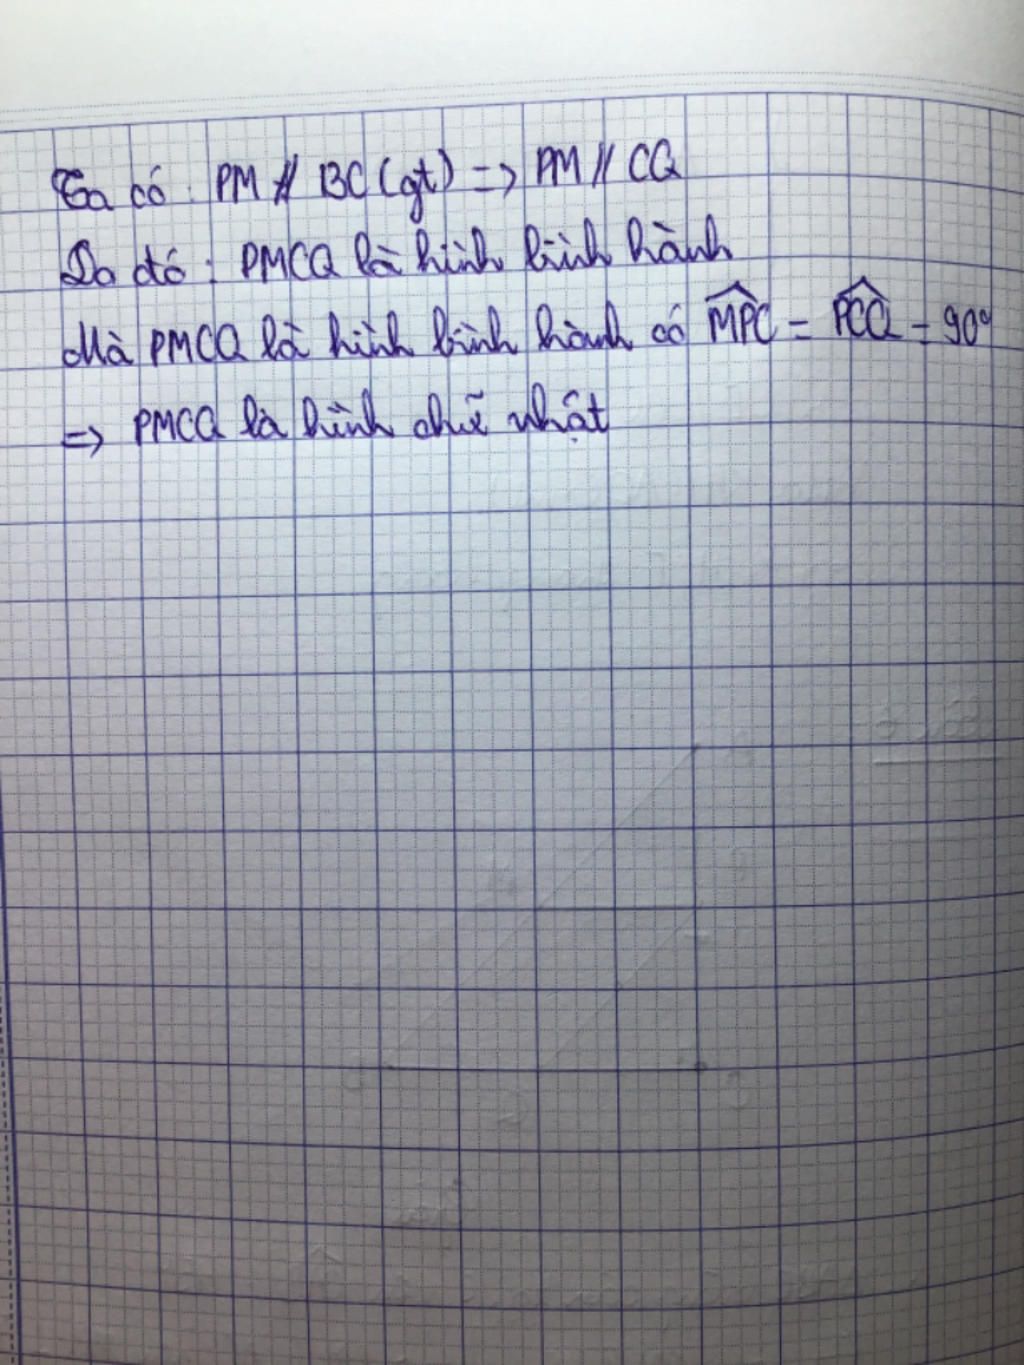 Ta có: PM // BC (gt) => PM // CQ
Do đó: PMCQ là hình bình hành
Mà PMCQ là hình bình hành có \widehat{MPC} = \widehat{PCQ} = 90°
=> PMCQ là hình chữ nhật